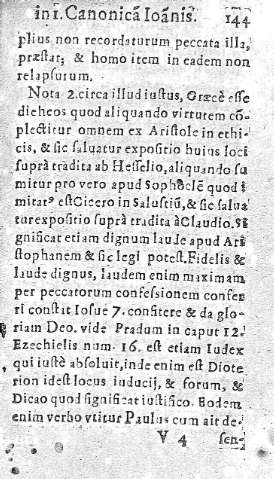 in 1. Canonicã Ioãnis. 144
plius non recordaturum peccata illa,
præstat; & homo item in eadem non
relapsurum.
Nota 2. circa illud iustus, Græcè esse
dicheos quod aliquando virtutem cõ-
plectitur omnem ex Aristole in ethi-
cis, & sic saluatur expositio huius loci
suprà tradita ab Hesselio, aliquando su
mitur pro vero apud Sophoclẽ quod i
mitatꝰ est Cicero in Salustiũ, & sic salua
tur expositio suprà tradita à Claudio. Si
gnificat etiam dignum laude apud Ari
stophanem & sic legi potest. Fidelis &
laude dignus, laudem enim maximam
per peccatorum confessionem confer
ri constat Iosue 7. confitere & da glo-
riam Deo. vide Pradum in caput 12.
Ezechielis num. 16. est etiam Iudex
qui iustè absoluit, inde enim est Diote
rion idest locus iudicij, & forum, &
Dicao quod significat iustifico. Eodem
enim verbo vtitur Paulus cum ait de-
V 4 sen-